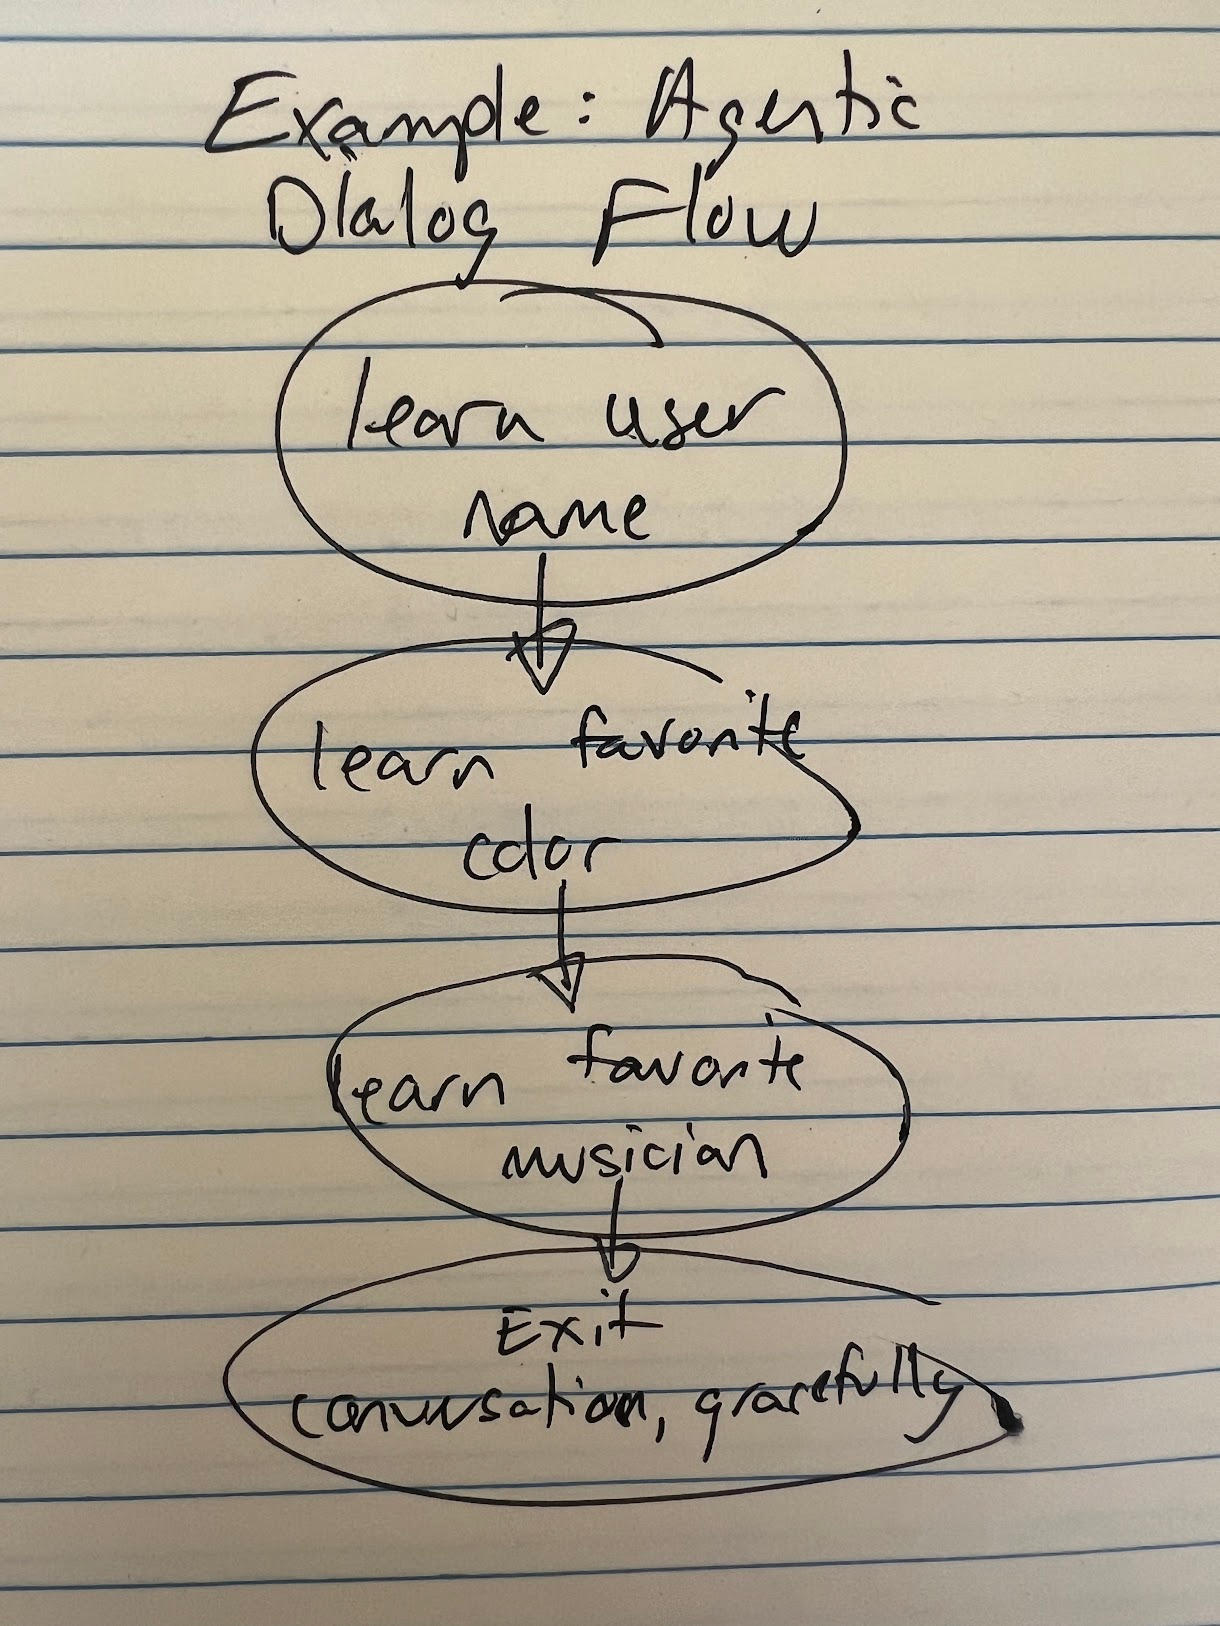 Example: Agentic
Dialog Flow
learn user
name
learn favorite
color
learn favorite
musician
Exit
conversation, gracefully